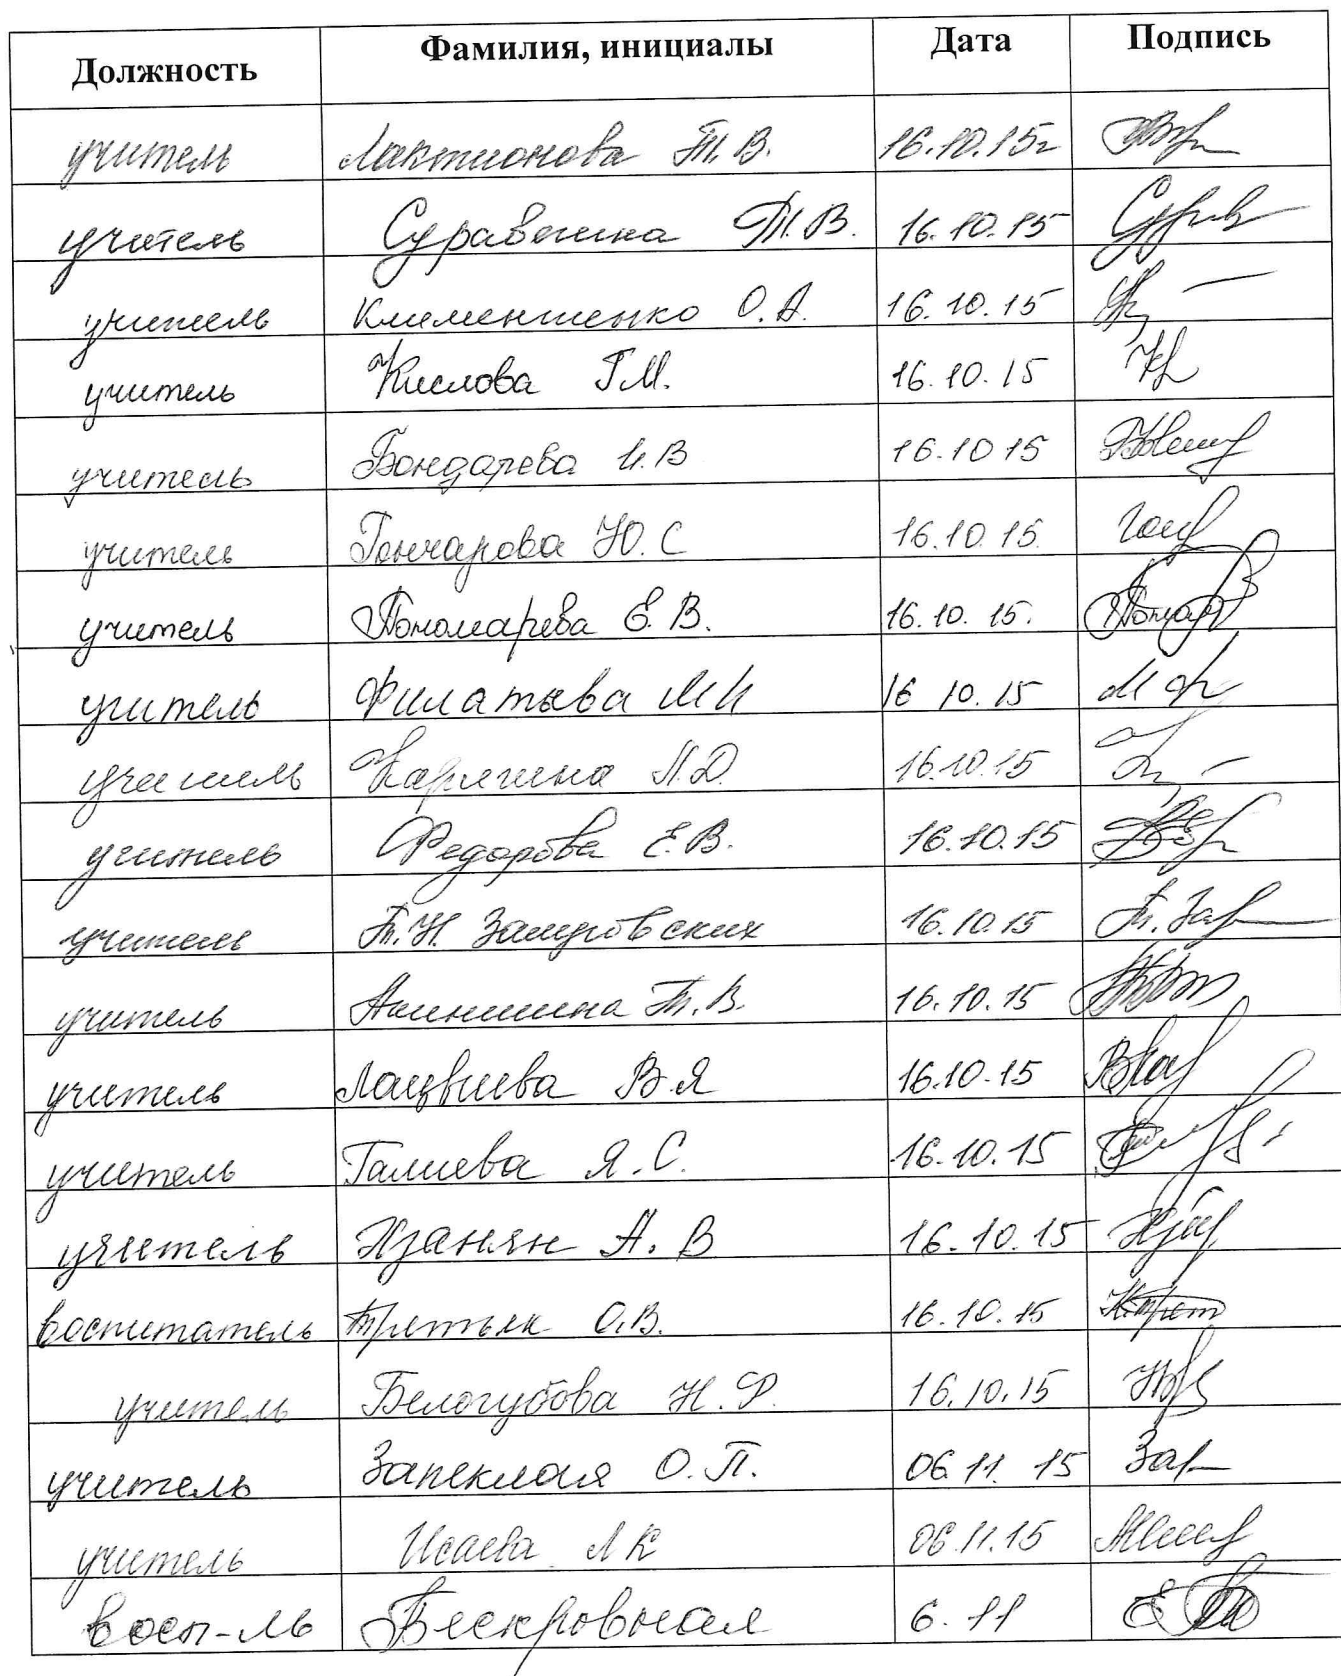 Должность Фамилия, инициалы Дата Подпись
учитель Лактионова Т.В. 16.10.15г
учитель Суравенина Т.В. 16.10.15
учитель Клементенко О.А. 16.10.15
учитель Кислова Г.М. 16.10.15
учитель Бондарева И.В 16.10 15
учитель Гончарова Ю.С 16.10.15
учитель Пономарева Е.В. 16.10.15.
учитель Филатьва М И 16 10.15
учитель Карягина Л.Д. 16.10.15
учитель Федорова Е.В. 16.10.15
учитель Т.Н. 16.10.15
учитель Т.В. 16.10.15
учитель В.Я 16.10.15
учитель Галиева Я.С. 16.10.15
учитель А.В 16.10.15
воспитатель Третьяк О.В. 16.10.15
учитель Белогубова Н.Ф. 16.10.15
учитель Запеклая О.П. 06.11.15
учитель Исаева Л К 06.11.15
восп-ль Бескровная 6.11